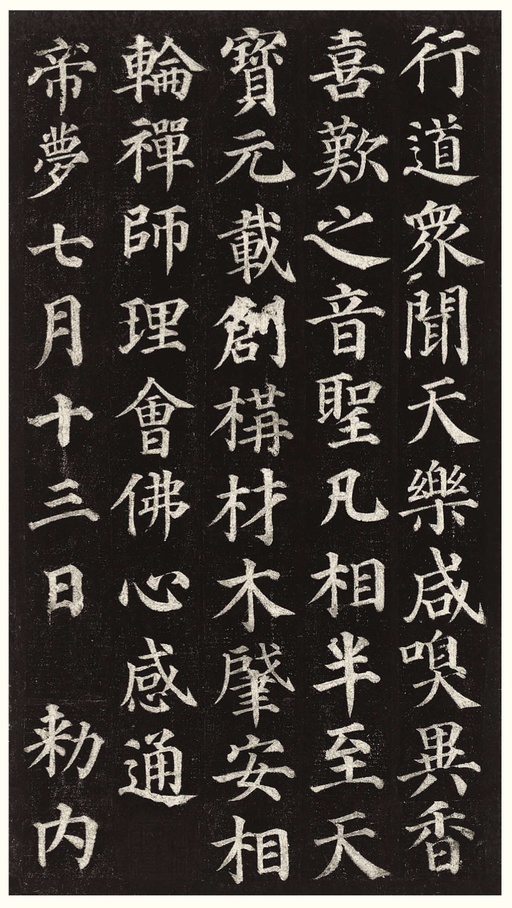 行道衆聞天樂咸嗅異香
喜歎之音聖凡相半至天
寶元載創構材木肇安相
輪禪師理會佛心感通
帝夢七月十三日 勑内